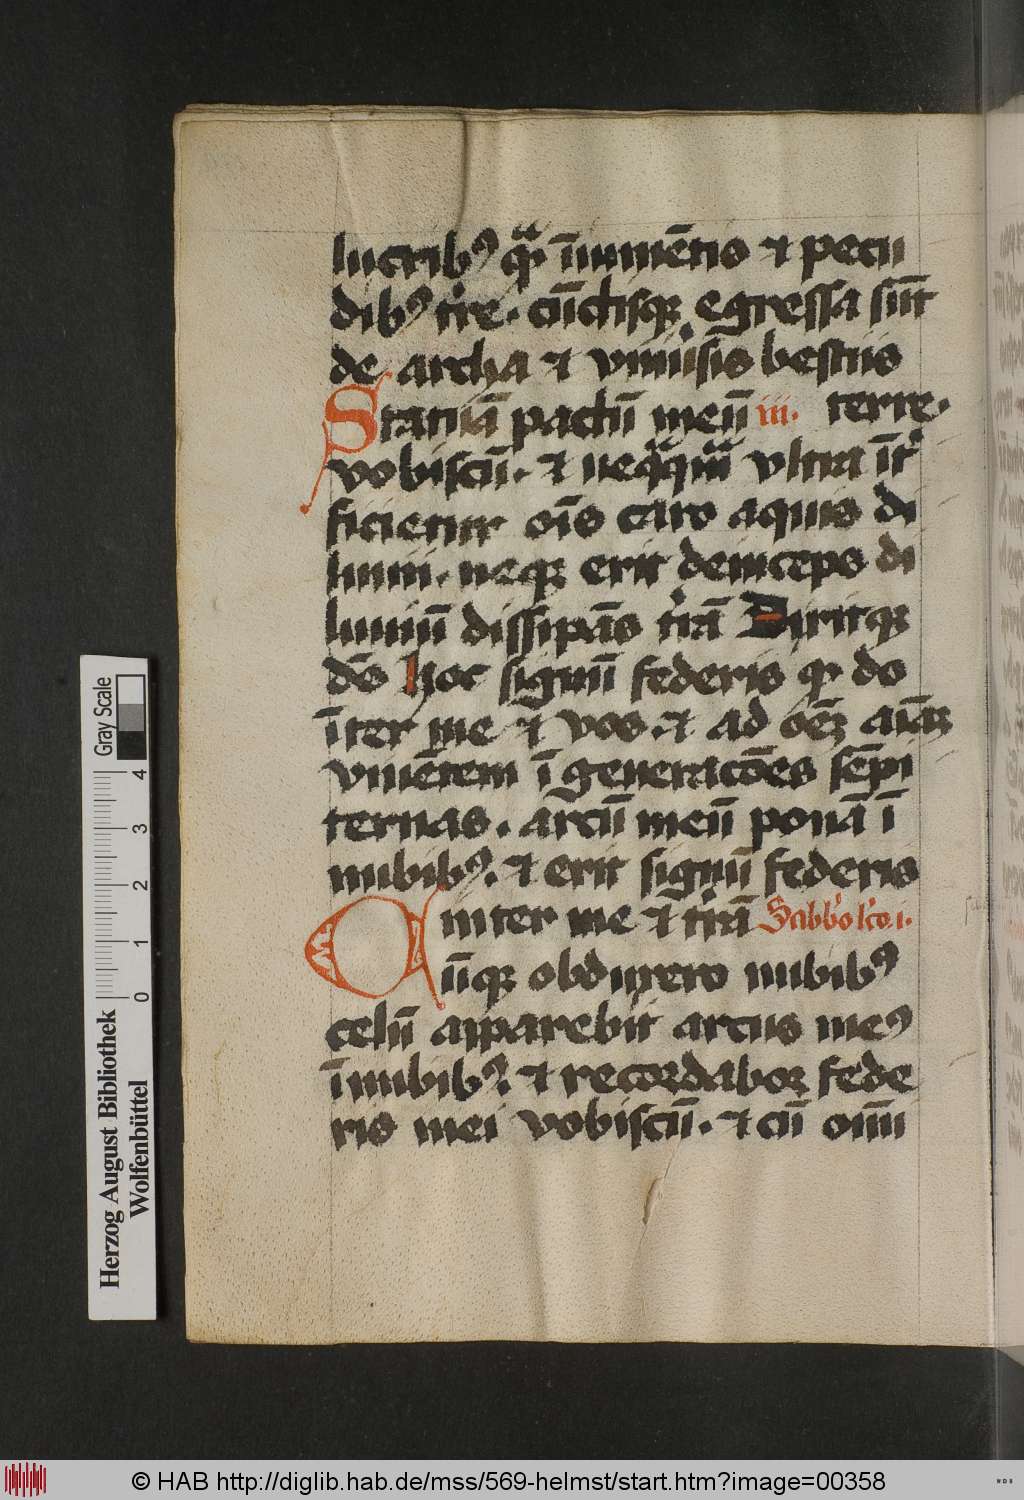 lucrib⁹ qͣ̄ ī iumētis ⁊ pecu
dib⁹ t͛re. cūctisqꝫ egressa sūt
de archa ⁊ vniu͛sis bestiis
Statuā pactū meū iii. terre.
vobiscū. ⁊ neqͣqͣm vltra īt͛
ficietur oīs caro aquis di
luuii. neqꝫ erit deinceps di
luuiū dissipās t͛rā Dixitqꝫ
dꝰ hoc signū federis qꝫ do
īter me ⁊ vos. ⁊ ad oēꝫ aīaꝫ
viuētem ī generacōes sēpi
ternas. arcū meū ponā ī
nubib⁹. ⁊ erit signū federis
inter me ⁊ t͛rā Sabb͛o lc̄o. i.
Cūqꝫ obduxero nubib⁹
celū apparebit arcus me⁹
ī nubib⁹. ⁊ recordabor fede
ris mei vobiscū. ⁊ cū omī
Herzog August Bibliothek
Wolfenbüttel
0 1 2 3 4
Gray Scale
© HAB http://diglib.hab.de/mss/569-helmst/start.htm?image=00358